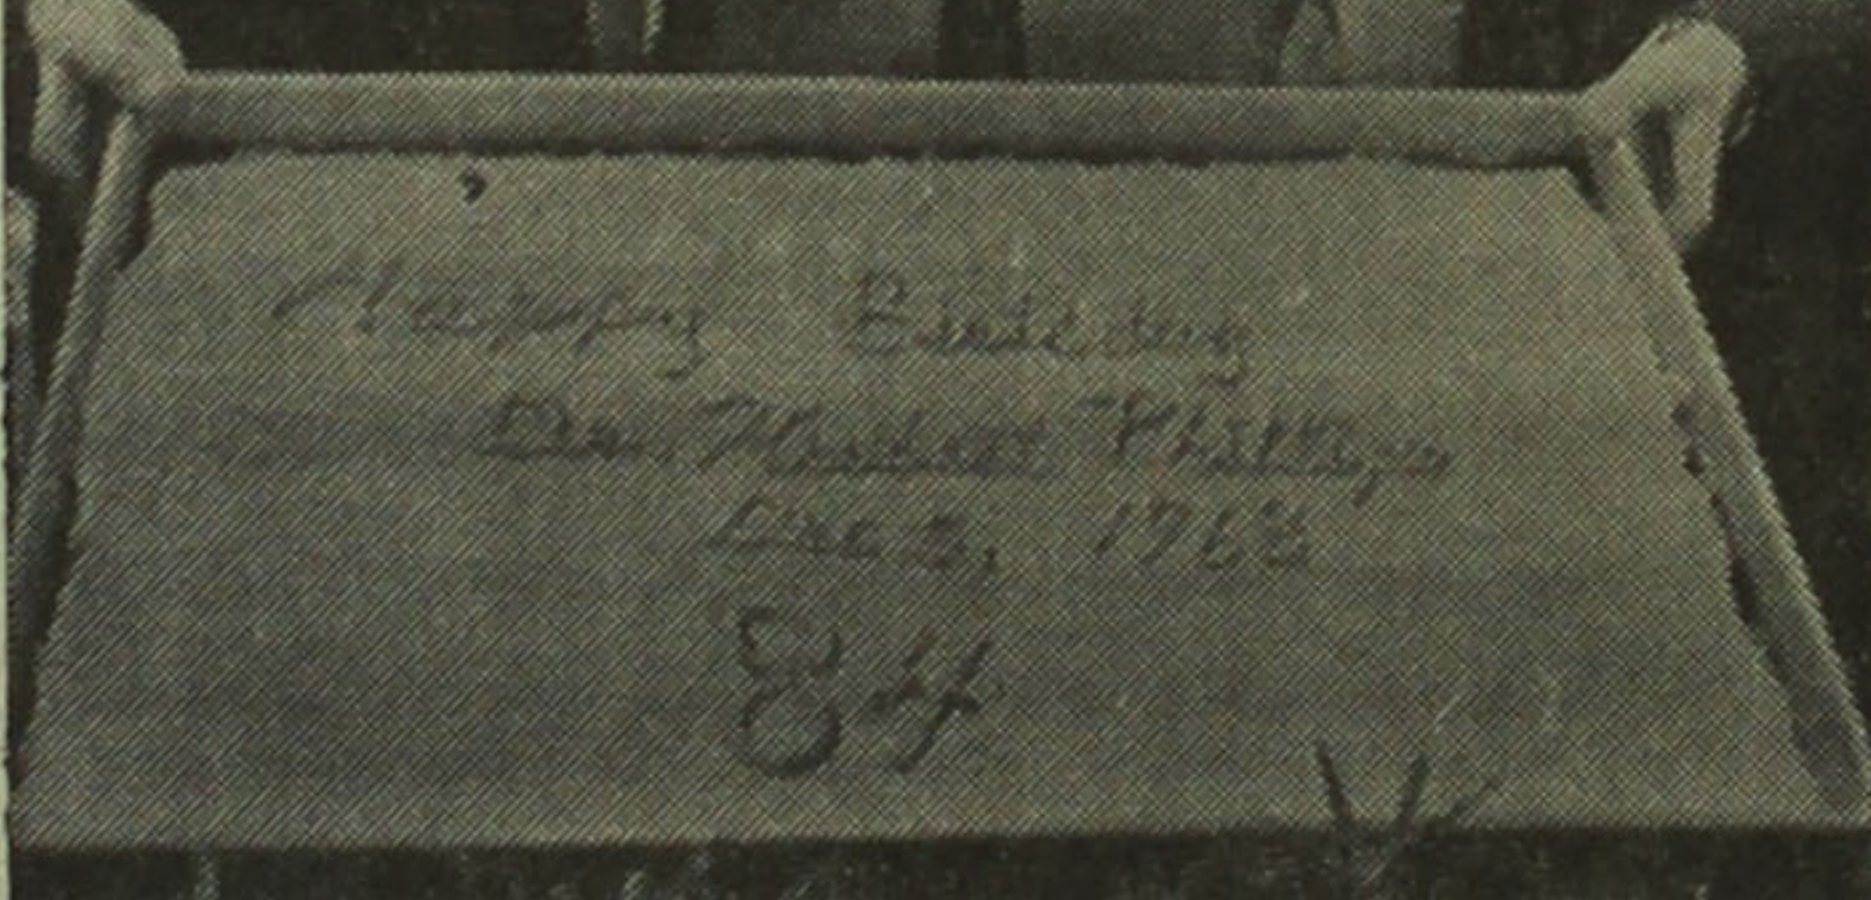 Happy Birthday
Dr. Herbert Phillips
Dec 3, 1968
84